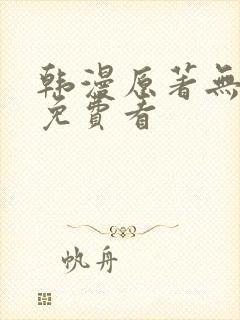 韩漫原著無
免費看
帆舟